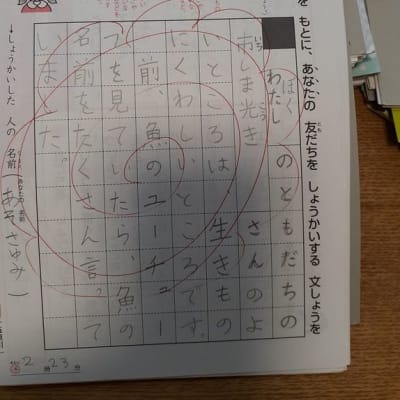 を もとに、あなたの 友だちを しょうかいする 文しょうを
とも
ぼく
わたし
のともだちの
いち こうき
市しま光き さんのよ
いところは 生きもの
にくわしいところです。
前、魚のユーチュー
ブを見ていたら、魚の
名前をたくさん言って
いました。
↓しょうかいした 人の 名前
（あなたの 名前
あそ さゆみ ）
2分23分